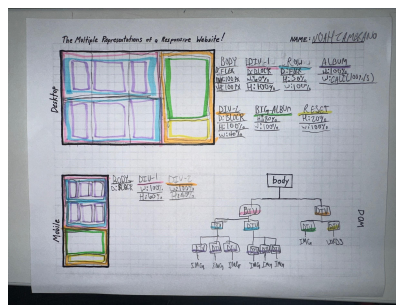 The Multiple Representations of a Responsive Website!
NAME: NOAH ZAMORANO
Desktop
BODY
D:FLEX
W:100%
H:100%
DIV-1
D:BLOCK
W:60%
H:100%
ROW
D:FLEX
H:50%
W:100%
ALBUM
W:100%
DIV-2
D:BLOCK
H:100%
W:40%
BIG-ALBUM
H:80%
W:100%
RESET
H:20%
W:100%
Mobile
BODY
D:BLOCK
DIV-1
W:100%
H:60%
DIV-2
body
DIV
DIV
DIV
DIV
DIV
DIV
DIV DIV DIV
DIV DIV DIV
IMG IMG IMG
IMG IMG IMG
IMG
WORDS
DOM